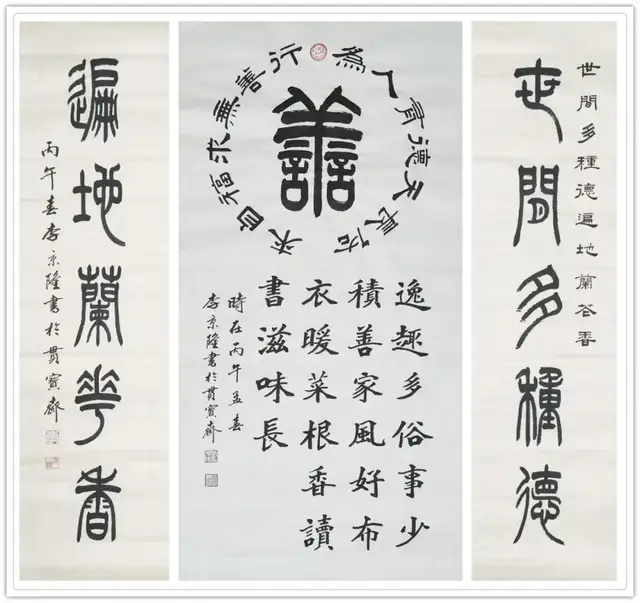 世間多種德遍地蘭花香
世間多種德
譱
為人有德天長佑
行善無求福自來
逸趣多俗事少
積善家風好布
衣暖菜根香讀
書滋味長
時在丙午孟春
李京隆書於貫寶齋
遍地蘭華香
丙午春李京隆書於貫寶齋